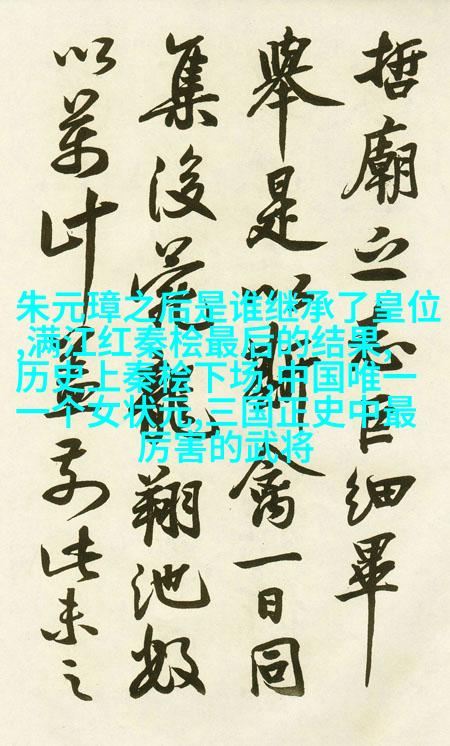 朱元璋之后是谁继承了皇位
,满江红秦桧最后的结果,
历史上秦桧下场,中国唯一
一个女状元,三国正史中最
厉害的武将
哲廟之志巨細畢
舉是以斯禽一日同
集後苑龍翔池殆
以萬計蓋前此未之